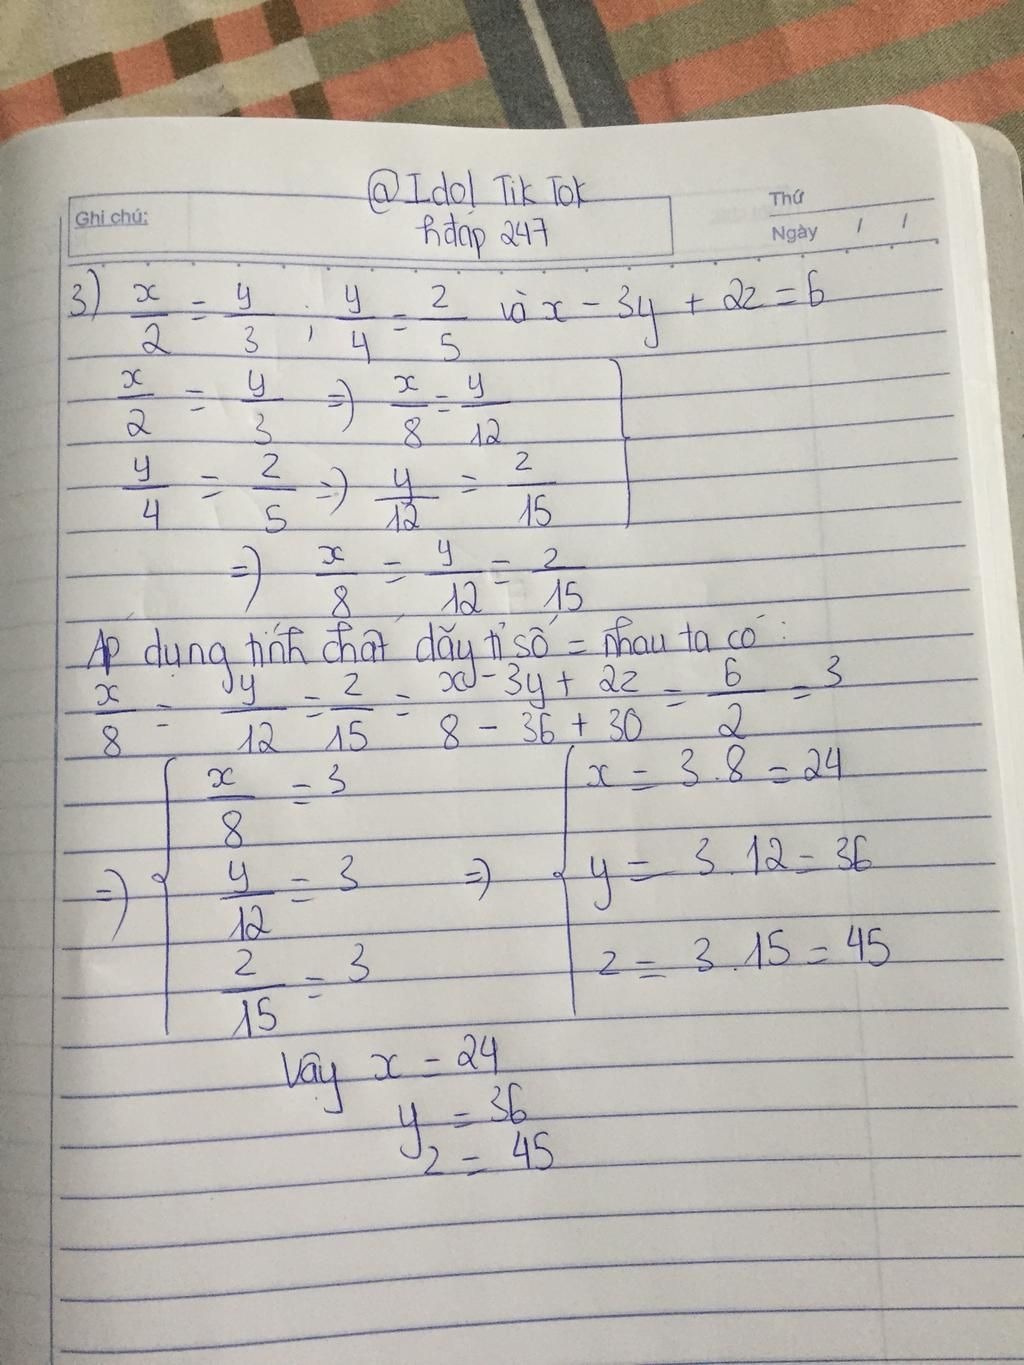 @Idol Tik Tok
Ghi chú:
hđáp 247
Thứ
Ngày / /
3) x/2 = y/3 ; y/4 = z/5 và x - 3y + 2z = 6
x/2 = y/3 => x/8 = y/12
y/4 = z/5 => y/12 = z/15
=> x/8 = y/12 = z/15
Áp dụng tính chất dãy tỉ số = nhau ta có :
x/8 = y/12 = z/15 = x - 3y + 2z/8 - 36 + 30 = 6/2 = 3
=> { x/8 = 3
y/12 = 3
z/15 = 3
=> { x = 3 . 8 = 24
y = 3 . 12 = 36
z = 3 . 15 = 45
Vậy x = 24
y = 36
z = 45